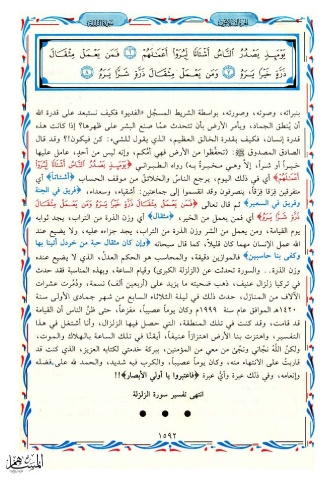 يَوْمَئِذٍ يَصْدُرُ النَّاسُ أَشْتَاتًا لِيُرَوْا أَعْمَالَهُمْ ٦ فَمَن يَعْمَلْ مِثْقَالَ
ذَرَّةٍ خَيْرًا يَرَهُ ٧ وَمَن يَعْمَلْ مِثْقَالَ ذَرَّةٍ شَرًّا يَرَهُ ٨
بنبراته، وصوته، وصورته، بواسطة الشريط المسجَّل «الفديو» فكيف نستبعد على قدرة الله
أن يُنطق الجماد، ويأمر الأرض بأن تتحدث عمَّا صنع البشر على ظهرها؟ إذا كانت هذه
قدرة إنسان، فكيف بقدرة الخالق العظيم، الذي يقول للشيء: كن فيكون؟! وقد قال
الصادق المصدوق ﷺ: (تحفَّظوا من الأرض فهي أمُّكم، وإنه ليس من أحدٍ، عامل عليها
خيراً أو شراً، إلاَّ وهي مخبرة به) رواه الطبراني ﴿يَوْمَئِذٍ يَصْدُرُ النَّاسُ أَشْتَاتًا لِيُرَوْا
أَعْمَالَهُمْ﴾ أي في ذلك اليوم، يرجع الناسُ والخلائق من موقف الحساب ﴿أشتاتاً﴾ أي
متفرقين فِرَقاً فِرَقاً، ينصرفون وقد انقسموا إلى جماعتين: أشقياء، وسعداء، ﴿فريق في الجنة
وفريق في السعير﴾ ثم قال تعالى ﴿فَمَن يَعْمَلْ مِثْقَالَ ذَرَّةٍ خَيْرًا يَرَهُ وَمَن يَعْمَلْ مِثْقَالَ
ذَرَّةٍ شَرًّا يَرَهُ﴾ أي فمن يعمل من الخير، ﴿مثقال﴾ أي وزن الذرة من التراب، يجد ثوابه
يوم القيامة، ومن يعمل من الشر وزن الذرة من التراب، يجد جزاءه عليه، ولا يضيع عند
الله عمل الإنسان مهما كان قليلاً، كما قال سبحانه ﴿وإن كان مثقال حبة من خردل أتينا بها
وكفى بنا حاسبين﴾ فالموازين دقيقة، والمحاسب هو الحكم العدلُ، الذي لا يضيع عنده
وزن الذرة.. والسورة تحدثت عن (الزلزلة الكبرى) وقيام الساعة، وبهذه المناسبة فقد حدث
في تركيا زلزال عنيف، ذهب ضحيته ما يزيد على (أربعين ألف) نسمة، ودُمِّرت عشرات
الآلاف من المنازل، حدث ذلك في ليلة الثلاثاء السابع من شهر جمادى الأولى سنة
١٤٢٠هـ الموافق عام سنة ١٩٩٩م وكان يوماً عصيباً، مفزعاً، حتى ظنَّ الناس أن القيامة
قد قامت، وقد كنت في تلك المنطقة، التي حصل فيها الزلزال، وأنا أشتغل في هذا
التفسير، واهتزت بنا الأرض اهتزازاً عنيفاً، أيقنَّا في تلك الساعة بالهلاك والموت،
ولكنَّ اللَّهَ نجَّاني ونجَّى من معي من المؤمنين، ببركة خدمتي لكتابه العزيز، الذي كنت قد
قاربتُ على الانتهاء منه، وكان يوماً عصيباً، والكرب فيه شديد، والحمد لله على فضله
وإنعامه، وفي ذلك عبرة وأيُّ عبرة ﴿فاعتبروا يا أولي الأبصار﴾!!
انتهى تفسير سورة الزلزلة
١٥٩٢